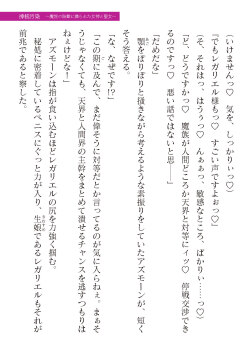 神核汚染 ～魔悦の裂罅に導かれる女神と聖女～
「いけませんっ♡　気を、しっかりぃっ♡」
「でもレガリエル様もっ♡　すごい声ですよぉっ♡」
「そ、それはっ、はうぅっ♡　んぁぁっ、敏感なところ、ばかりぃ……っ♡
「ど、どうですかっ♡　魔族が人間どころか天界と対等にィッ♡　停戦交渉でき
るのですっ♡　悪い話ではないと思――」
「だめだな」
　顎をぽりぽりと掻きながら考えるような素振りをしていたアズモーンが、短く
そう答える。
「な、なぜです!?」
「この期に及んで、まだ偉そうに対等だとか言ってるのが気に入らねぇ。まぁそ
うじゃなくても、天界と人間界の主幹をまとめて潰せるチャンスを逃すつもりは
ねぇけどな！」
　アズモーンは指が食い込むほどレガリエルの尻を力強く掴む。
　秘処に密着しているペニスにぐっと力が入り、生娘であるレガリエルもそれが
前兆であると察した。